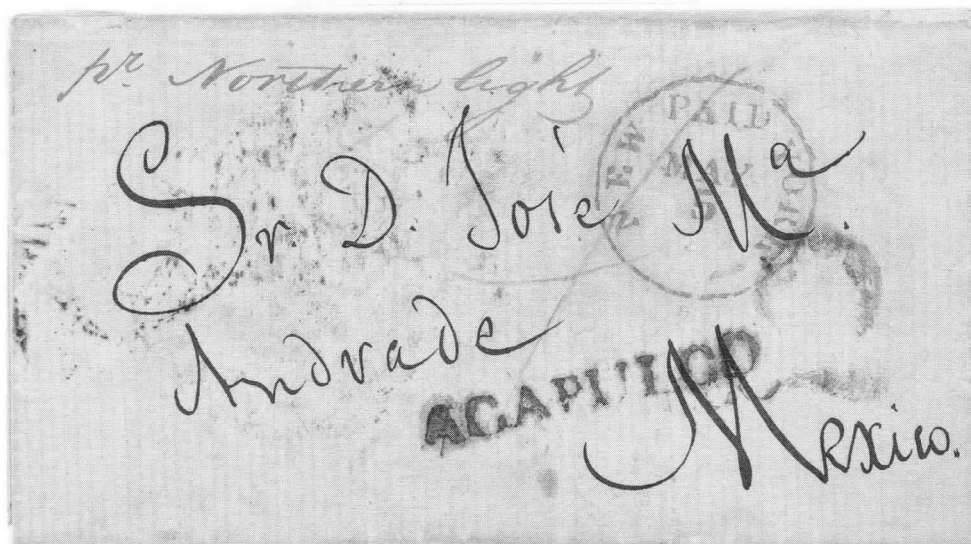 pr. Northern light
NEW PAID YORK
MAY
5
Sr D. José Mª.
Andrade
ACAPULCO
Mexico.